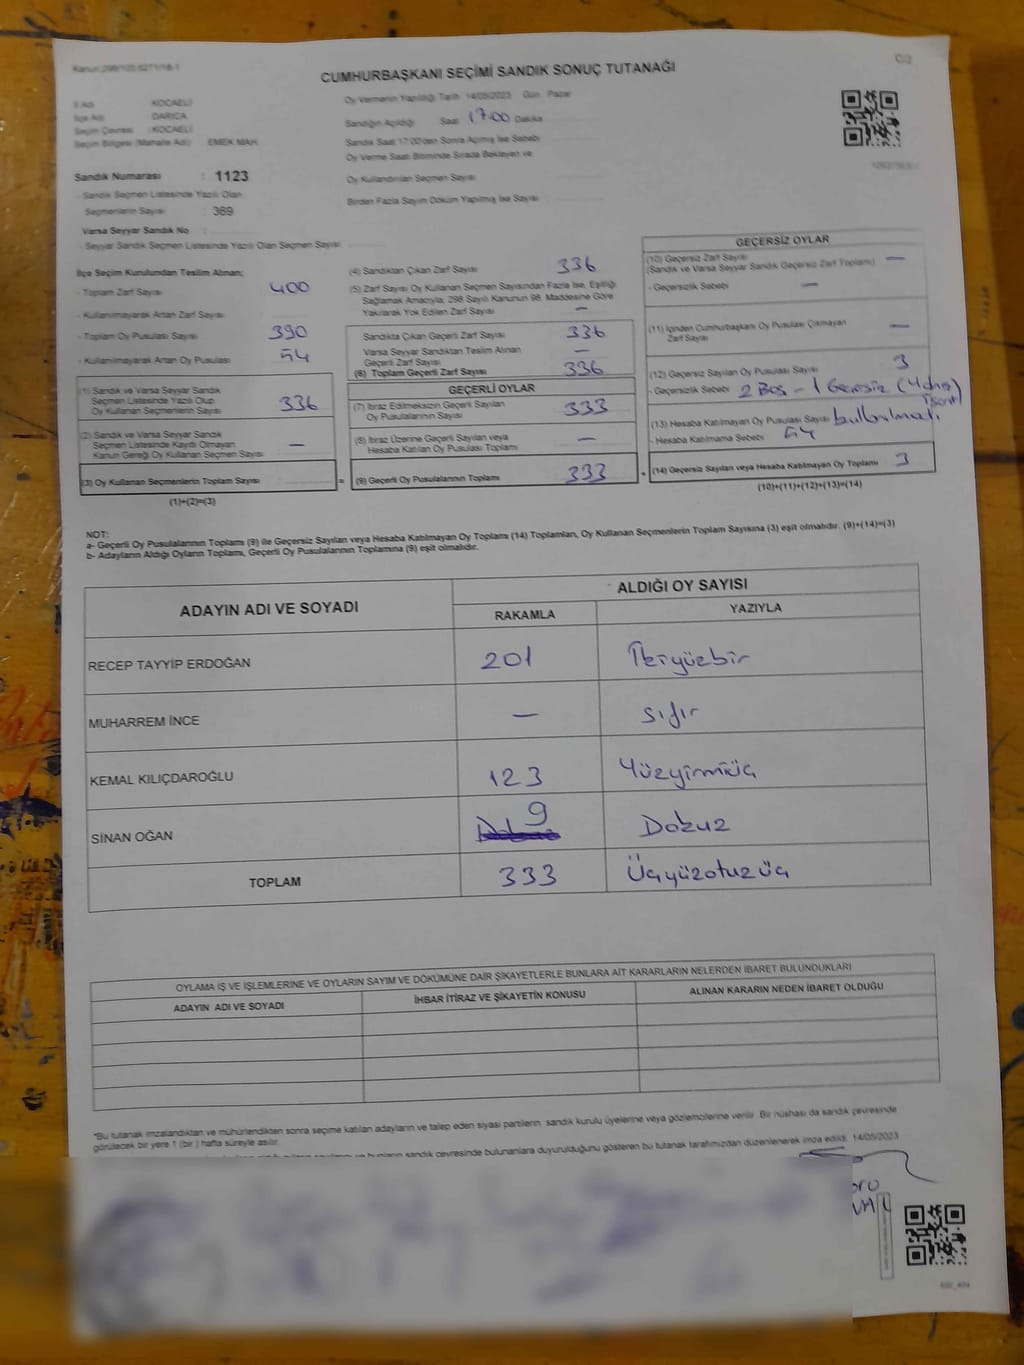 Kanun:298/105,6271/18-1
C/2
CUMHURBAŞKANI SEÇİMİ SANDIK SONUÇ TUTANAĞI
İl Adı KOCAELİ
İlçe Adı DARICA
Seçim Çevresi : KOCAELİ
Seçim Bölgesi (Mahalle Adı) EMEK MAH.
Sandık Numarası : 1123
- Sandık Seçmen Listesinde Yazılı Olan
Seçmenlerin Sayısı : 369
Varsa Seyyar Sandık No
- Seyyar Sandık Seçmen Listesinde Yazılı Olan Seçmen Sayısı
Oy Vermenin Yapıldığı Tarih 14/05/2023 Gün Pazar
Sandığın Açıldığı Saat 17:00 Dakika
Sandık Saat 17:00'den Sonra Açılmış İse Sebebi
Oy Verme Saati Bitiminde Sırada Bekleyen ve
Oy Kullandırılan Seçmen Sayısı
Birden Fazla Sayım Döküm Yapılmış İse Sayısı
İlçe Seçim Kurulundan Teslim Alınan;
- Toplam Zarf Sayısı 400
- Kullanılmayarak Artan Zarf Sayısı
- Toplam Oy Pusulası Sayısı 390
- Kullanılmayarak Artan Oy Pusulası 54
(1) Sandık ve Varsa Seyyar Sandık
Seçmen Listesinde Yazılı Olup
Oy Kullanan Seçmenlerin Sayısı 336
(2) Sandık ve Varsa Seyyar Sandık
Seçmen Listesinde Kayıtlı Olmayan
Kanun Gereği Oy Kullanan Seçmen Sayısı —
(3) Oy Kullanan Seçmenlerin Toplam Sayısı
(1)+(2)=(3)
(4) Sandıktan Çıkan Zarf Sayısı 336
(5) Zarf Sayısı Oy Kullanan Seçmen Sayısından Fazla İse, Eşitliği
Sağlamak Amacıyla, 298 Sayılı Kanunun 98. Maddesine Göre
Yakılarak Yok Edilen Zarf Sayısı —
Sandıkta Çıkan Geçerli Zarf Sayısı 336
Varsa Seyyar Sandıktan Teslim Alınan
Geçerli Zarf Sayısı —
(6) Toplam Geçerli Zarf Sayısı 336
GEÇERLİ OYLAR
(7) İtiraz Edilmeksizin Geçerli Sayılan
Oy Pusulalarının Sayısı 333
(8) İtiraz Üzerine Geçerli Sayılan veya
Hesaba Katılan Oy Pusulası Toplamı —
= (9) Geçerli Oy Pusulalarının Toplamı 333
GEÇERSİZ OYLAR
(10) Geçersiz Zarf Sayısı —
(Sandık ve Varsa Seyyar Sandık Geçersiz Zarf Toplamı)
- Geçersizlik Sebebi —
(11) İçinden Cumhurbaşkanı Oy Pusulası Çıkmayan
Zarf Sayısı —
(12) Geçersiz Sayılan Oy Pusulası Sayısı 3
- Geçersizlik Sebebi 2 Boş - 1 Geçersiz
(13) Hesaba Katılmayan Oy Pusulası Sayısı
- Hesaba Katılmama Sebebi
+ (14) Geçersiz Sayılan veya Hesaba Katılmayan Oy Toplamı 3
(10)+(11)+(12)+(13)=(14)
NOT:
a- Geçerli Oy Pusulalarının Toplamı (9) ile Geçersiz Sayılan veya Hesaba Katılmayan Oy Toplamı (14) Toplamları, Oy Kullanan Seçmenlerin Toplam Sayısına (3) eşit olmalıdır. (9)+(14)=(3)
b- Adayların Aldığı Oyların Toplamı, Geçerli Oy Pusulalarının Toplamına (9) eşit olmalıdır.
ADAYIN ADI VE SOYADI ALDIĞI OY SAYISI
RAKAMLA YAZIYLA
RECEP TAYYİP ERDOĞAN 201 İkiyüzbir
MUHARREM İNCE — sıfır
KEMAL KILIÇDAROĞLU 123 Yüzyirmiüç
SİNAN OĞAN 9 Dokuz
TOPLAM 333 Üçyüzotuzüç
OYLAMA İŞ VE İŞLEMLERİNE VE OYLARIN SAYIM VE DÖKÜMÜNE DAİR ŞİKAYETLERLE BUNLARA AİT KARARLARIN NELERDEN İBARET BULUNDUKLARI
ADAYIN ADI VE SOYADI İHBAR İTİRAZ VE ŞİKAYETİN KONUSU ALINAN KARARIN NEDEN İBARET OLDUĞU
*Bu tutanak imzalandıktan ve mühürlendikten sonra seçime katılan adayların ve talep eden siyasi partilerin sandık kurulu üyelerine veya gözlemcilerine verilir. Bir nüshası da sandık çevresinde
görülecek bir yere 1 (bir) hafta süreyle asılır.
ve bunların sandık çevresinde bulunanlara duyurulduğunu gösteren bu tutanak tarafımızdan düzenlenerek imza edildi. 14/05/2023